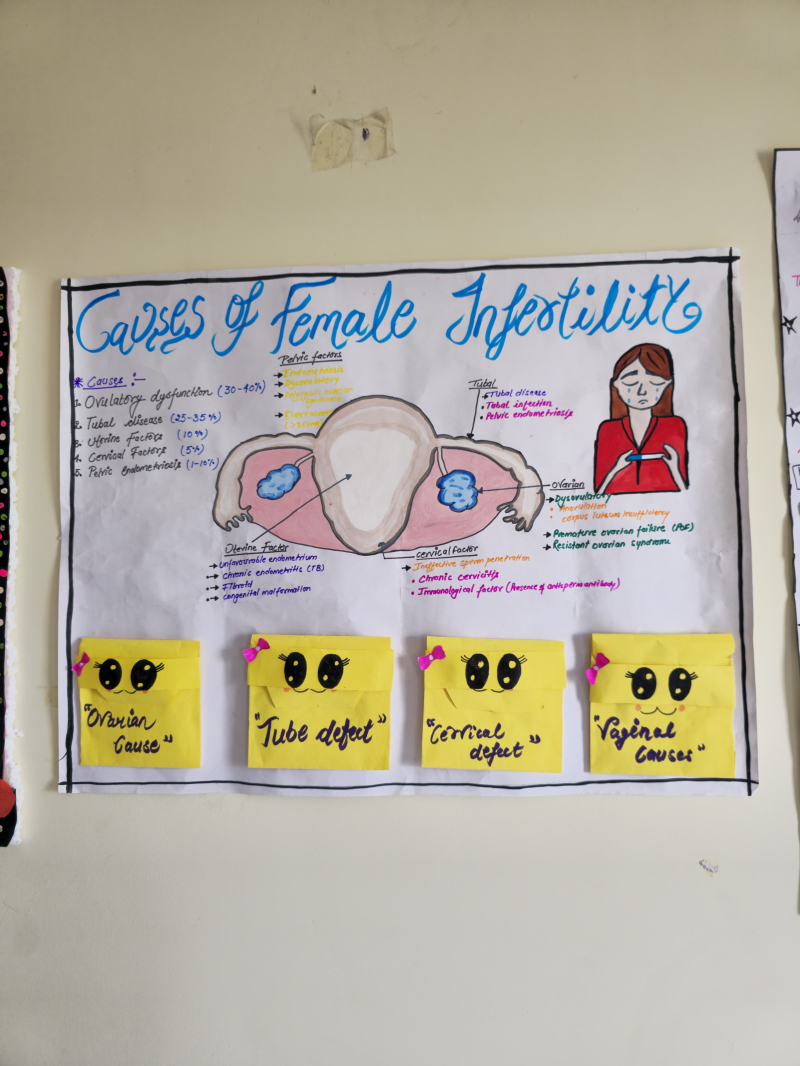 Causes of Female Infertility
* Causes :-
1. Ovulatory dysfunction (30-40%)
2. Tubal disease (25-35%)
3. Uterine Factors (10%)
4. Cervical Factors (5%)
5. Pelvic Endometriosis (1-10%)
Pelvic factors
→ Endometriosis
→ Dysovulatory
→
Tubal
→ Tubal disease
• Tubal infection
• Pelvic endometriosis
Ovarian
→ Dysovulatory
•
corpus luteum insufficiency
→ Premature ovarian failure (POF)
→ Resistant ovarian syndrome
Uterine Factor
→ Unfavourable endometrium
→ Chronic endometritis (TB)
→ Fibroid
→ Congenital malformation
Cervical factor
→ Ineffective sperm penetration
• Chronic cervicitis
• Immunological factor (Presence of antisperm antibody)
"Ovarian
Cause"
"Tube defect"
"Cervical
defect"
"Vaginal
Causes"